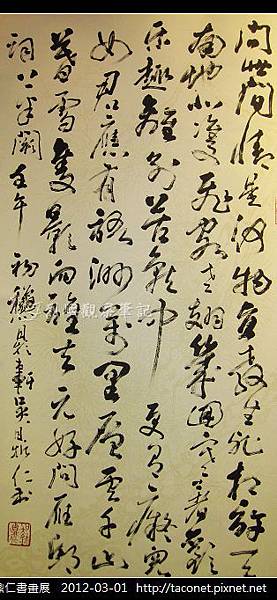 問世間情是何物直教生死相許天
南地北雙飛客老翅幾回寒暑歡
樂趣離別苦就中更有癡兒
女君應有語渺萬里層雲千山
暮雪隻影向誰去元好問雁邱
詞上半闋 壬午初 軒吳 仁書
觀察筆記
仁書畫展 2012-03-01 http://taconet.pixnet.net